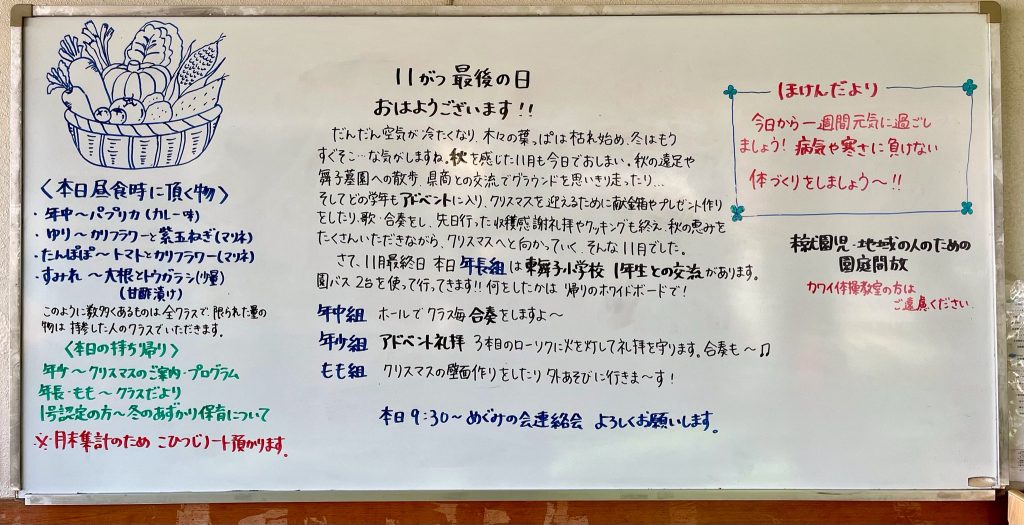 〈本日昼食時に頂く物〉
・年中～パプリカ(カレー味)
・ゆり～カリフラワーと紫玉ねぎ(マリネ)
・たんぽぽ～トマトとカリフラワー(マリネ)
・すみれ～大根とトウガラシ(少量)
(甘酢漬け)
このように数多くあるものは全クラスで、限られた量の
物は持参した人のクラスでいただきます。
〈本日の持ち帰り〉
年少～クリスマスのご案内・プログラム
年長・もも～クラスだより
1号認定の方～冬のあずかり保育について
※月末集計のため こひつじノート頂かります。
11がつ最後の日
おはようございます!!
だんだん空気が冷たくなり、木々の葉っぱは枯れ始め、冬はもう
すぐそこ…な気がしますね。秋を感じた11月も今日でおしまい。秋の遠足や
舞子墓園への散歩、県商との交流でグラウンドを思いきり走ったり…
そしてどの学年もアドベントに入り、クリスマスを迎えるために献金箱やプレゼント作り
をしたり、歌・合奏をし、先日行った収穫感謝礼拝やクッキングも終え、秋の恵みを
たくさんいただきながら、クリスマスへと向かっていく、そんな11月でした。
さて、11月最終日 本日年長組は東舞子小学校 1年生との交流があります。
園バス2台を使って行ってきます!!何をしたかは帰りのホワイトボードで!
年中組 ホールでクラス毎合奏をしますよ～
年少組 アドベント礼拝 3本目のローソクに火を灯して礼拝を守ります。合奏も～♫
もも組 クリスマスの壁面作りをしたり外あそびに行きま～す!
本日9:30～めぐみの会連絡会 よろしくお願いします。
ほけんだより
今日から一週間元気に過ごし
ましょう!病気や寒さに負けない
体づくりをしましょう～!!
園児・地域の人のための
園庭開放
カワイ体操教室の方は
ご遠慮ください